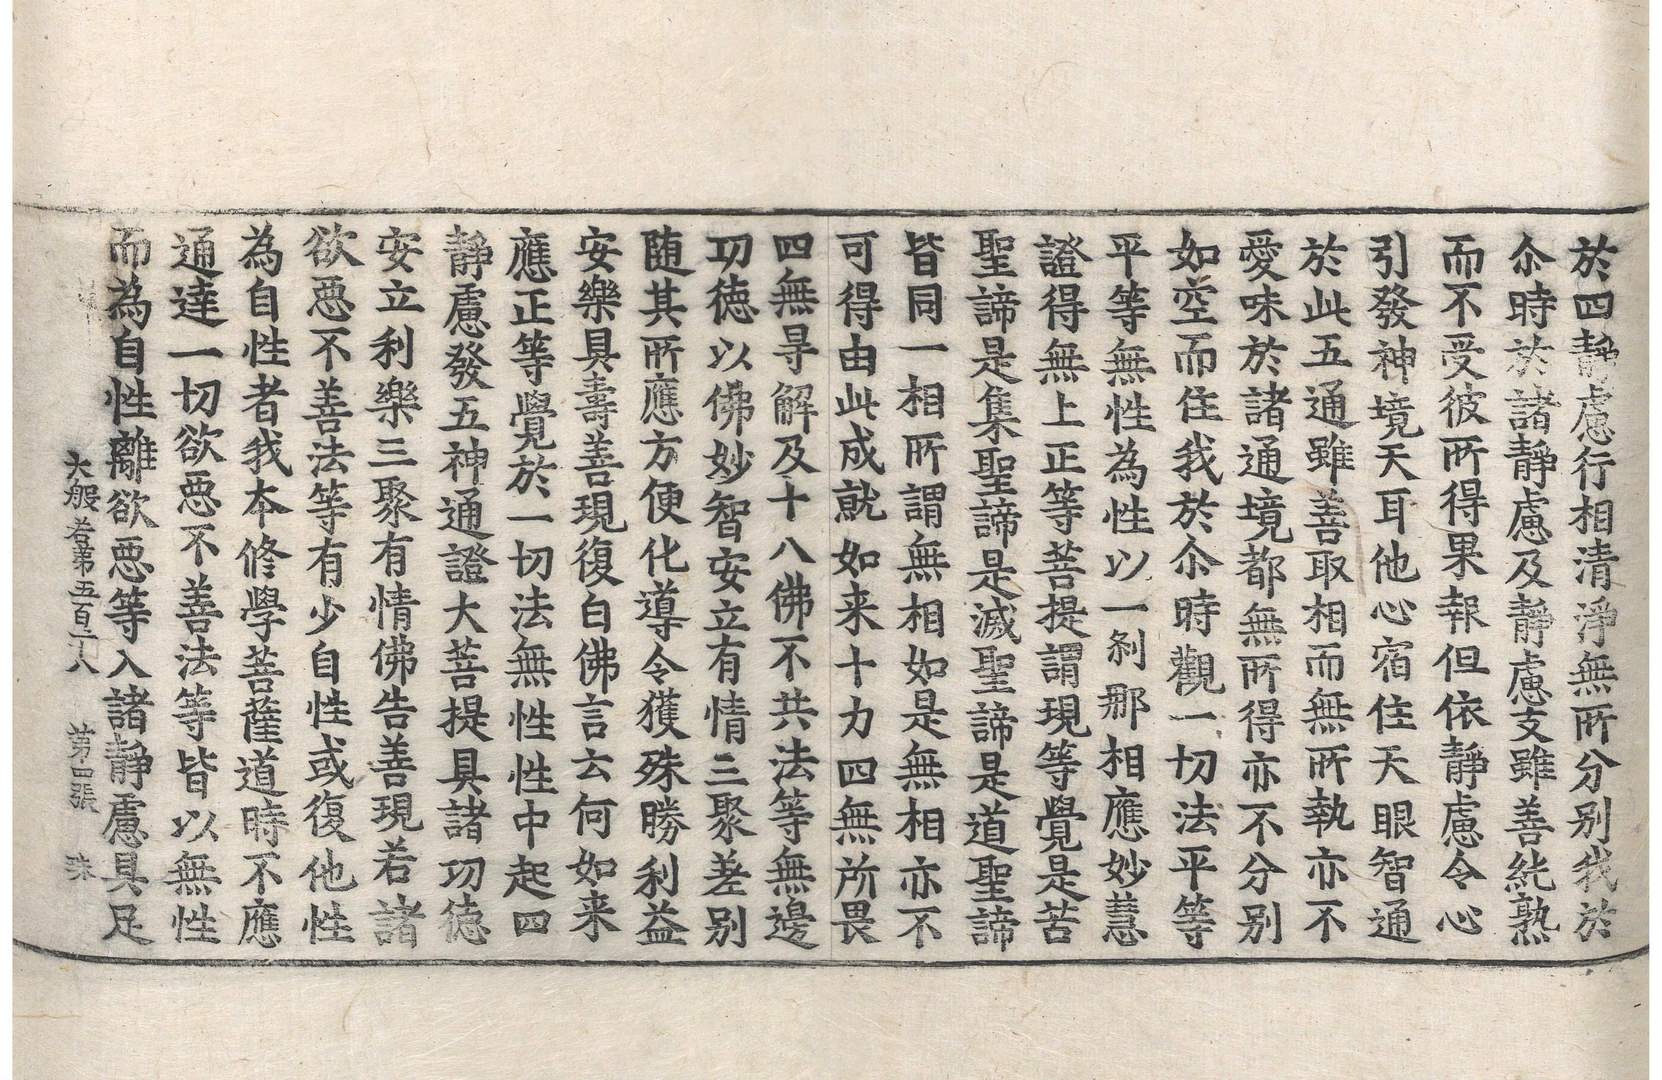 於四靜慮行相清淨無所分別我於
尒時於諸靜慮及靜慮支雖善純熟
而不受彼所得果報但依靜慮令心
引發神境天耳他心宿住天眼智通
於此五通雖善取相而無所執亦不
愛味於諸通境都無所得亦不分別
如空而住我於尒時觀一切法平等
平等無性為性以一刹那相應妙慧
證得無上正等菩提謂現等覺是苦
聖諦是集聖諦是滅聖諦是道聖諦
皆同一相所謂無相如是無相亦不
可得由此成就如来十力四無所畏
四無㝵解及十八佛不共法等無邊
功徳以佛妙智安立有情三聚差別
随其所應方便化導令獲殊勝利益
安樂具壽善現復白佛言云何如来
應正等覺於一切法無性性中起四
靜慮發五神通證大菩提具諸功徳
安立利樂三聚有情佛告善現若諸
欲惡不善法等有少自性或復他性
為自性者我本修學菩薩道時不應
通達一切欲惡不善法等皆以無性
而為自性離欲惡等入諸靜慮具足
大般若第五百二十八 第四張 珠